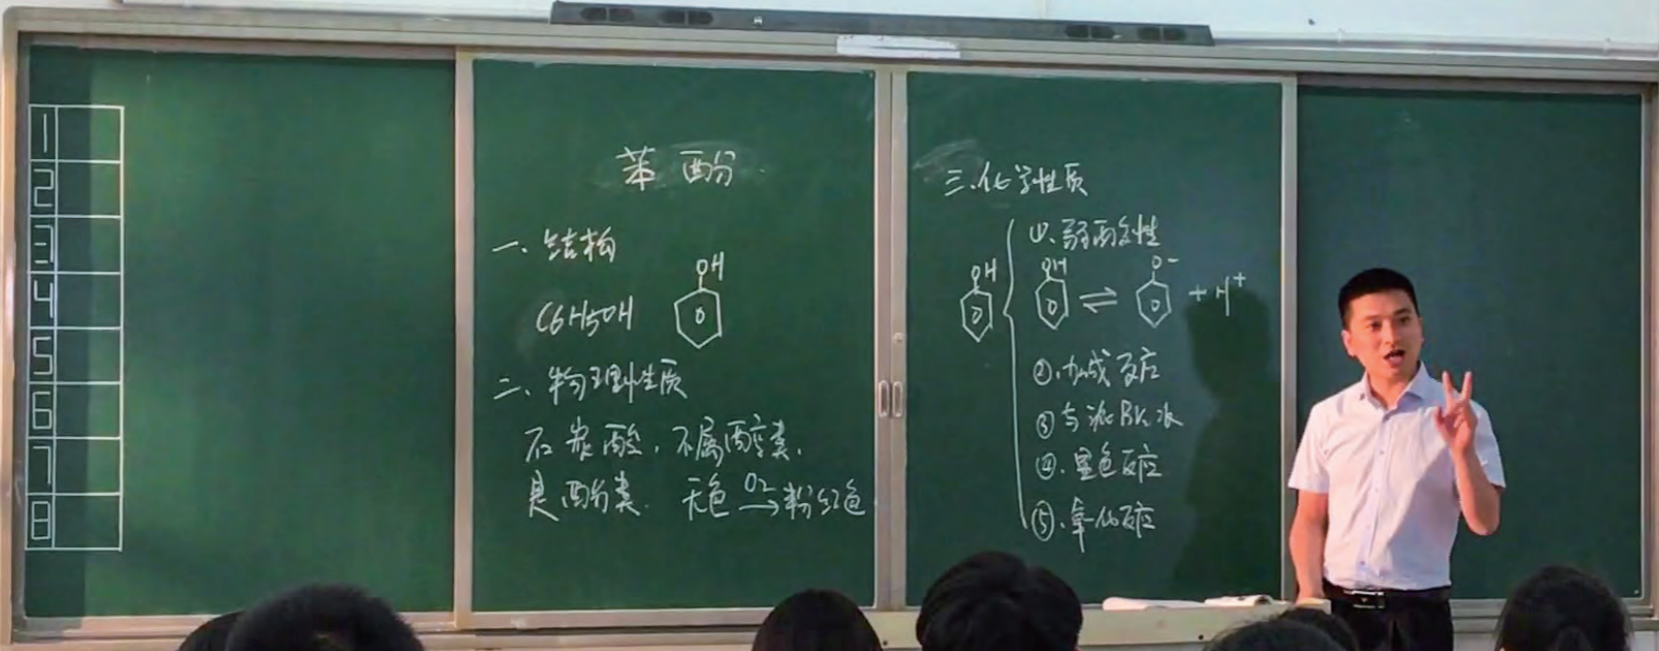 1
2
3
4
5
6
7
8
苯酚
一、结构
C6H5OH
OH
二、物理性质
石炭酸,不属醇类,
是酚类. 无色 O2→ 粉红色
三.化学性质
OH
①.弱酸性
OH ⇌ O- + H+
②.加成反应
③与浓Br2水
④.显色反应
⑤.氧化反应